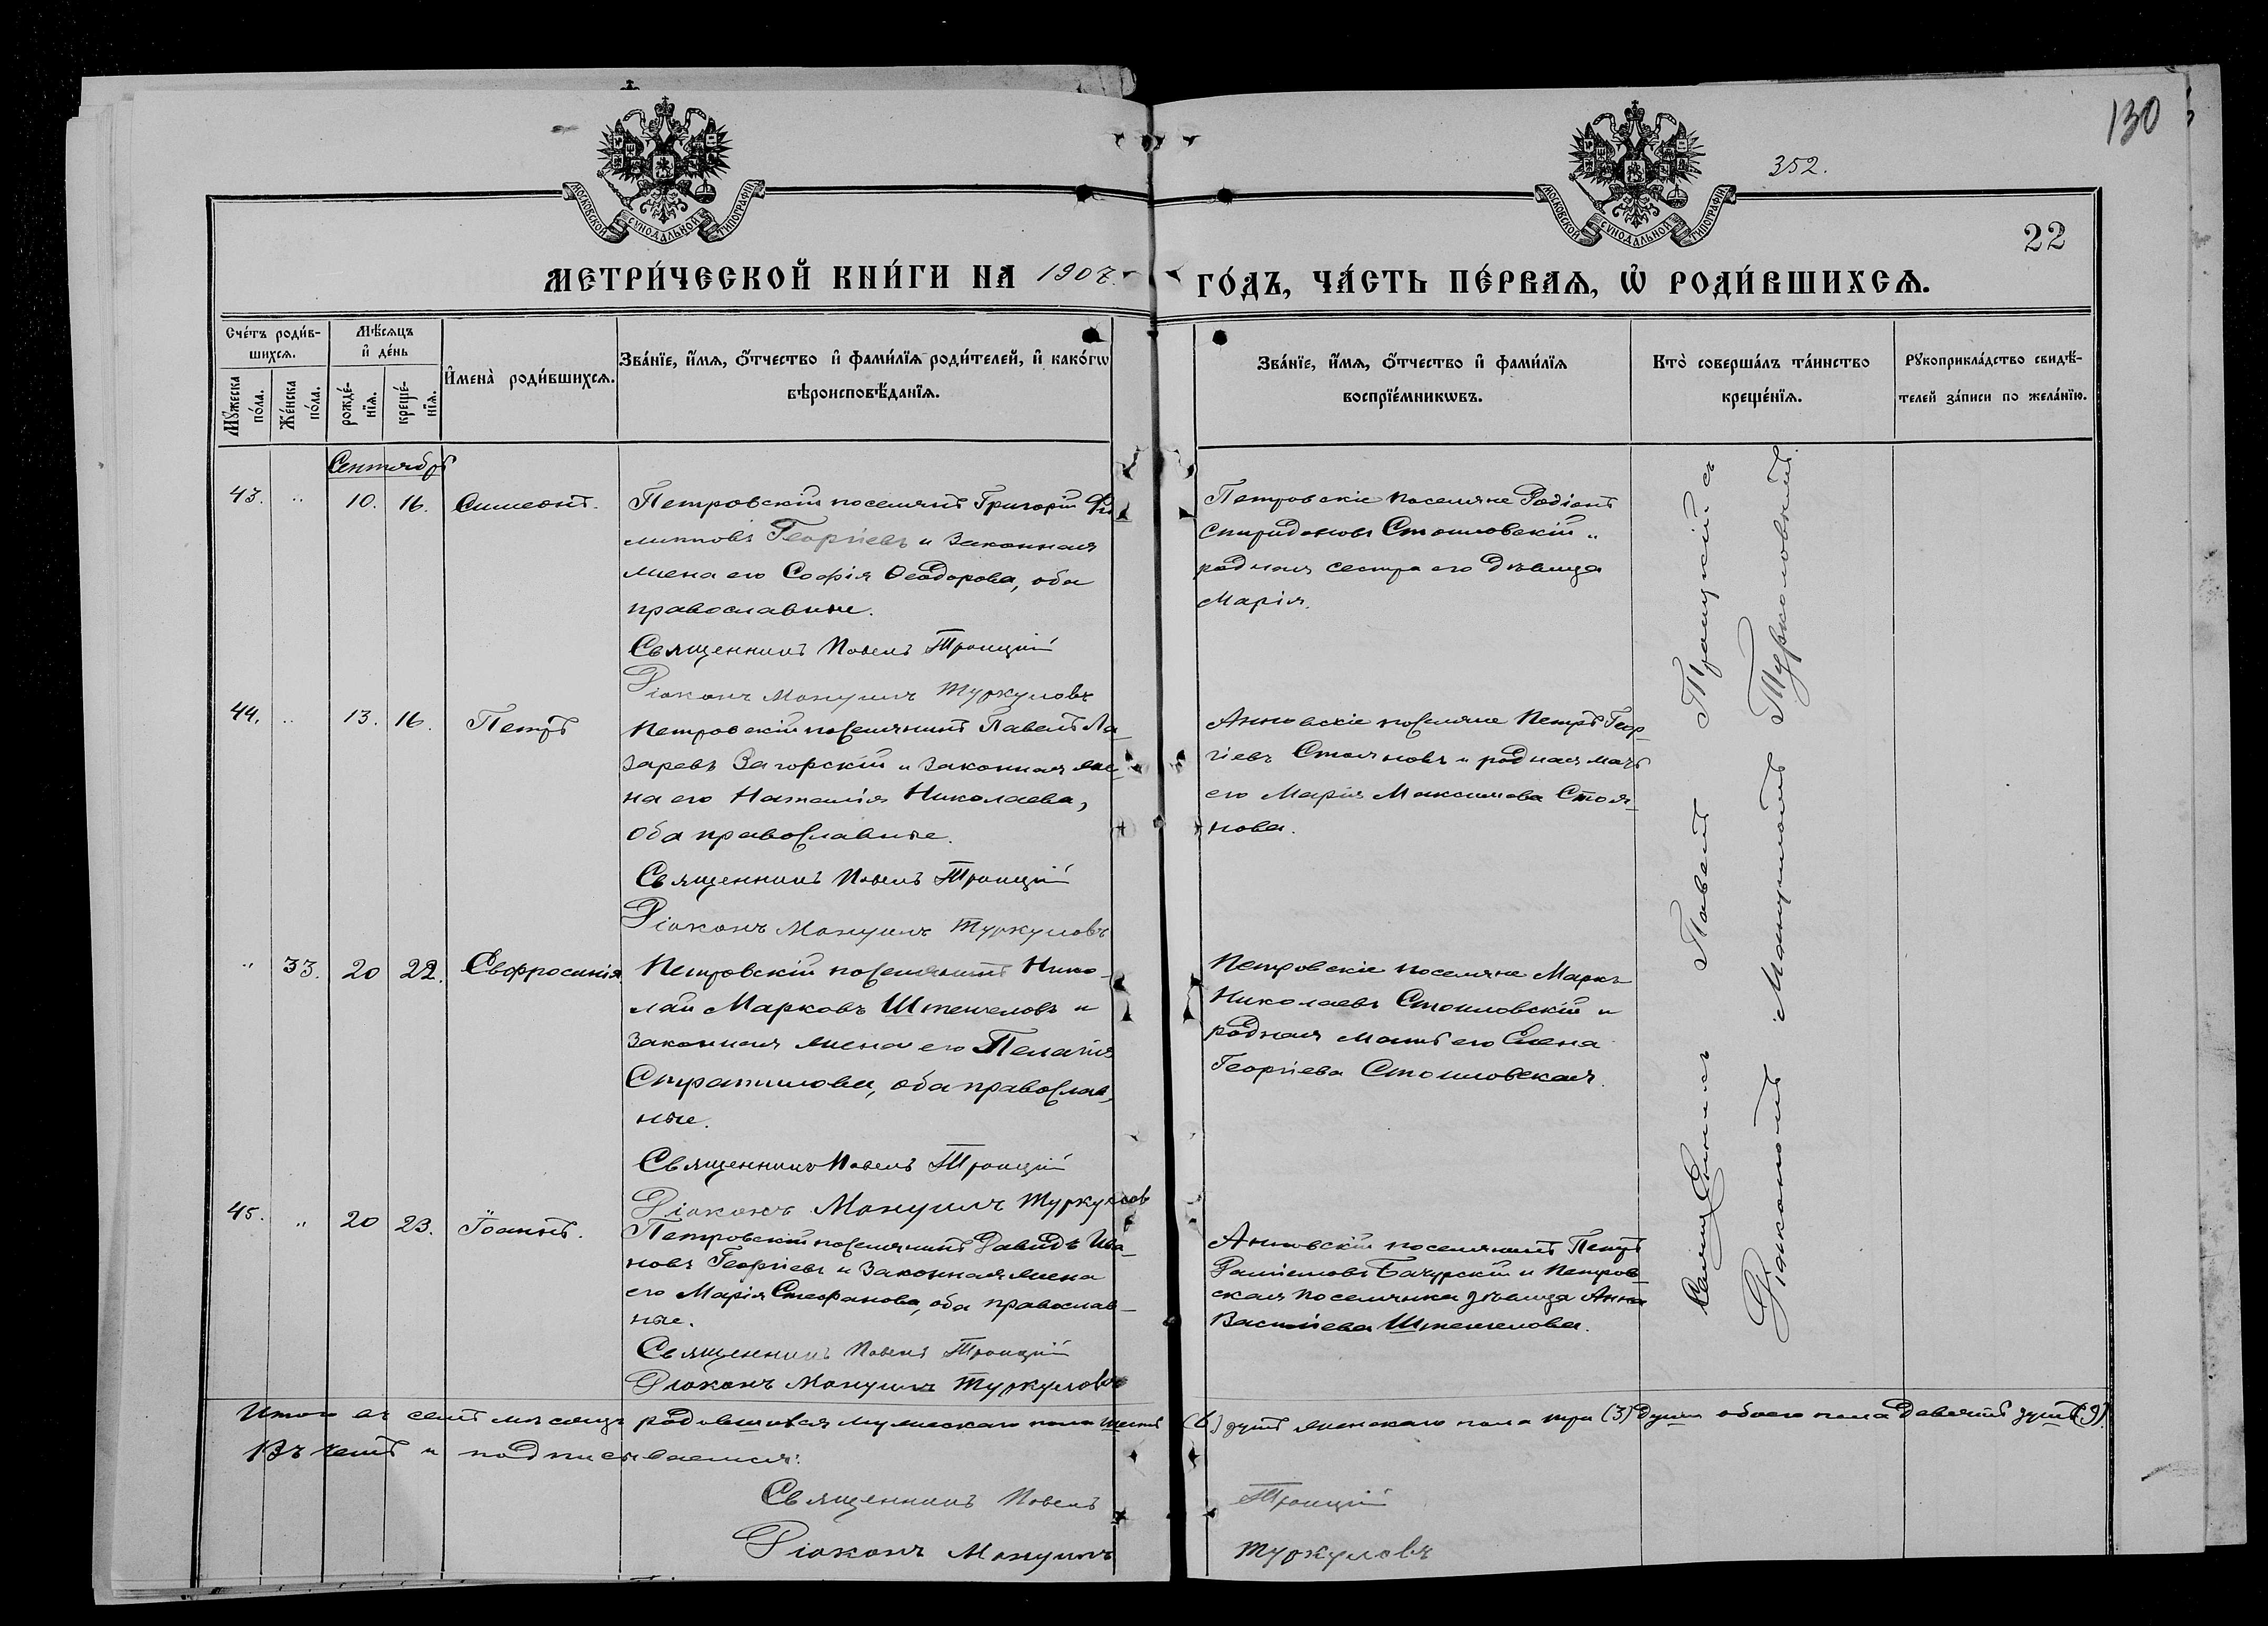 130
352.
22
МОСКОВСКОЙ СѴНОДАЛЬНОЙ ТИПОГРАФІИ
МОСКОВСКОЙ СѴНОДАЛЬНОЙ ТИПОГРАФІИ
МЕТРИ́ЧЕСКОЙ КНИ́ГИ НА 1907 ГО́ДЪ, ЧА́СТЬ ПЕ́РВАѦ, Ѡ РОДИ́ВШИХСѦ.
Сче́тъ роди́в-
шихсѧ.
Мѹжеска по́ла.
Же́нска по́ла.
Мѣ́сѧцъ и де́нь
рожде́-нїѧ.
креще́-нїѧ.
И́мена̀ роди́вшихсѧ.
Зва́нїе, и́мѧ, о́тчество и фами́лїѧ роди́телей, и како́гѡ
вѣроисповѣ́данїѧ.
Зва́нїе, и́мѧ, о́тчество и фами́лїѧ
воспрїе́мникѡвъ.
Кто̀ соверша́лъ та́инство
креще́нїѧ.
Рѹкоприкла́дство свидѣ́-
телей за́писи по жела́нїю.
Сентябрь
43. " 10. 16. Симеонъ.
Петровскій поселянинъ Григорій Фи
липповъ Георгіевъ и законная
жена его Софія Ѳеодорова, оба
православные.
Священникъ Павелъ Троицкій
Діаконъ Мануилъ Туркуловъ
Петровскіе поселяне Родіонъ
Спиридоновъ Стоиловскій и
родная сестра его дѣвица
Марія.
44. " 13. 16. Петръ
Петровскій поселянинъ Павелъ Ла-
заревъ Загорскій и законная же-
на его Наталія Николаева,
оба православные.
Священникъ Павелъ Троицкій
Діаконъ Мануилъ Туркуловъ
Анновскіе поселяне Петръ Геор-
гіевъ Стояновъ и родная мать
его Марія Максимова Стоя-
нова.
" 33. 20 22. Евфросинія
Петровскій поселянинъ Нико-
лай Марковъ Штенгеловъ и
законная жена его Пелагія
Стратилова, оба православ-
ные.
Священникъ Павелъ Троицкій
Діаконъ Мануилъ Туркулов
Петровскіе поселяне Маркъ
Николаевъ Стоиловскій и
родная мать его Елена
Георгіева Стоиловская.
45. " 20 23. Іоаннъ.
Петровскій поселянинъ Давидъ Ива-
новъ Георгіевъ и законная жена
его Марія Стефанова, оба православ-
ные.
Священникъ Павелъ Троицкій
Діаконъ Мануилъ Туркуловъ
Анновскій поселянинъ Петръ
Бачурскій и Петров-
ская поселянка дѣвица Анна
Васильева Штенгелова.
Священникъ Павелъ Троицкій съ
Діакономъ Мануиломъ Туркуловымъ.
Итого въ сент. мѣсяцѣ родившихся мужескаго пола шесть (6) душъ женскаго пола три (3) души обоего пола девять душъ (9).
Въ чемъ и подписываемся:
Священникъ Павелъ Троицкій
Діаконъ Мануилъ Туркуловъ